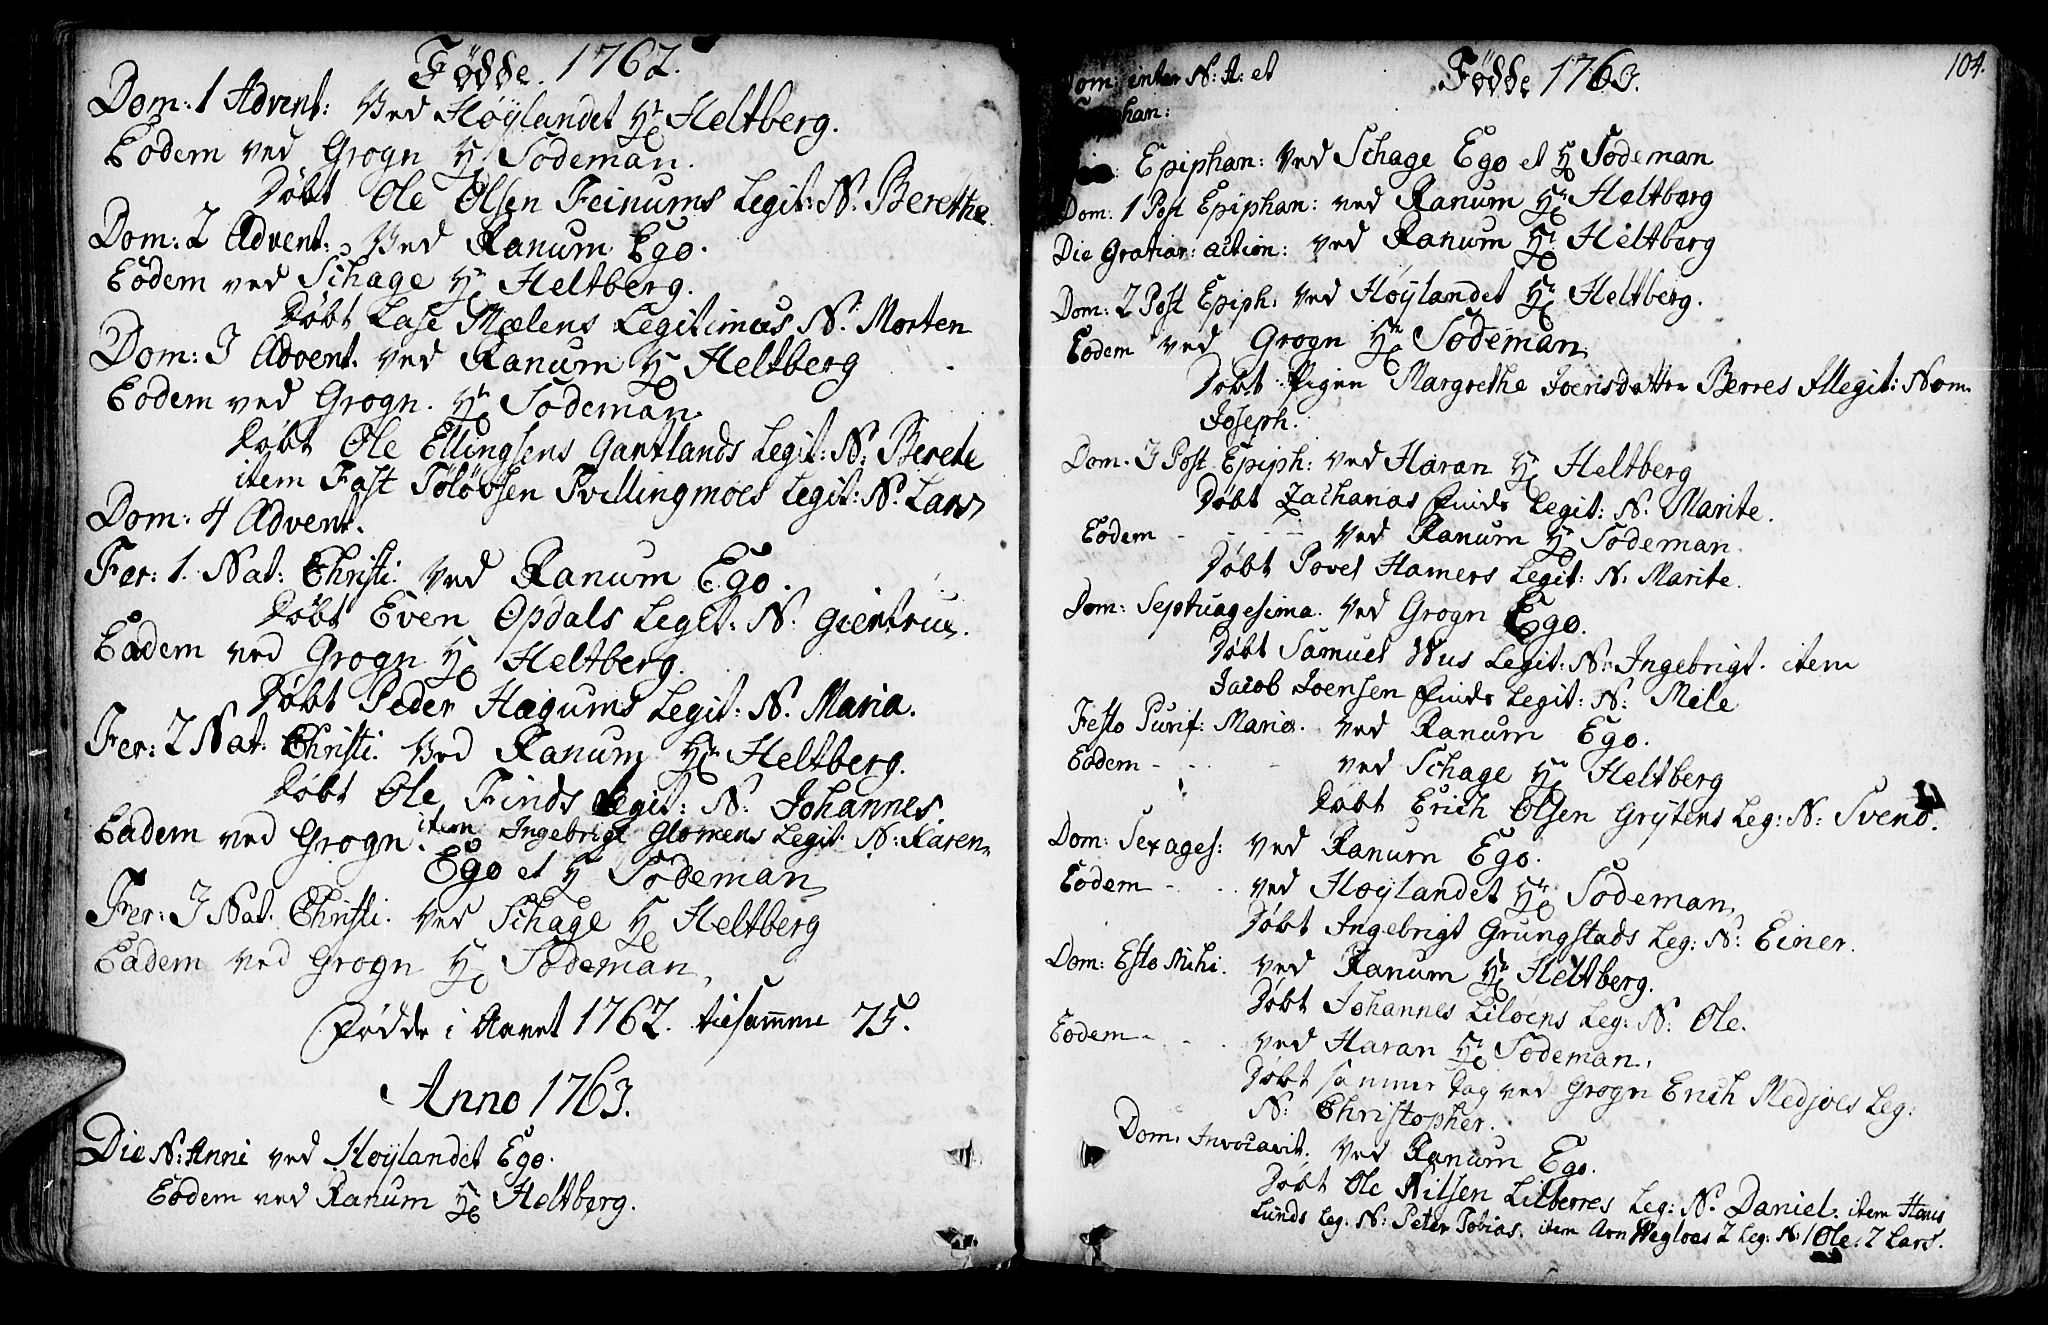 Fødde. 1762.
Dom: 1 Advent: Ved Høylandet Hr Heltberg.
Eodem ved Grogn Hr Sodeman.
Døbt Ole Olsen Feinums Legit: N. Berethe
Dom: 2 Advent: Ved Ranum Ego.
Eodem ved Schage Hr Heltberg.
Døbt Lase Mælens Legitimus N: Morten
Dom: 3 Advent. ved Ranum Hr Heltberg
Eodem ved Grogn. Hr Sodeman.
Døbt Ole Ellingsens Gartlands Legit: N: Berete
item Fast Toløvsen Tvillingmoes Legit: N. Lars
Dom: 4 Advent.
Fer: 1. Nat: Christi. Ved Ranum Ego.
Døbt Even Opdals Legit: N. Giertrue.
Eadem ved Grogn Hr Heltberg.
Døbt Peder Hægums Legit: N. Maria.
Fer: 2 Nat: Christi. Ved Ranum Hr Heltberg.
Døbt Ole Finds Legit: N: Johannes.
item Ingebrigt Glomens Legit: N: Karen
Eadem ved Grogn.
Ego et Hr Sodeman
Fer: 3 Nat. Christi. Ved Schage Hr Heltberg
Eadem ved Grogn Hr Sodeman.
Fødde i Aaret 1762. tilsamme 75.
Anno 1763.
Die N: Anni ved Høylandet Ego.
Eodem ved Ranum Hr Heltberg.
104.
Fødde 1763.
Dom: inter N: A: et
Epiphan:
Epiphan: Ved Schage Ego et Hr Sodeman
Dom: 1 Post Epiphan: ved Ranum Hr Heltberg
Die Gratiar: action: ved Ranum Hr Heltberg
Dom: 2 Post Epiph: ved Høylandet Hr Heltberg.
Eodem ved Grogn Hr Sodeman
Døbt Pigen Margrethe Joensdatter Berres Illegit: Nom.
Joseph.
Dom. 3 Post Epiph: ved Haran Hr Heltberg
Døbt Zacharias Finds Legit: N. Marite.
Eodem - - - - ved Ranum Hr Sodeman.
Døbt Povel Hamers Legit: N: Marite.
Dom: Septuagesima. Ved Grogn Ego.
Døbt Samuel Mus Legit: N: Ingebrigt. item
Jacob Joensen Finds Legit: N: Mele
Festo Purif: Mariæ. ved Ranum Ego.
Eodem - - - ved Schage Hr Heltberg
Døbt Erich Olsen Grytens Leg: N: Svend.
Dom: Sexages: ved Ranum Ego.
Eodem - - . ved Høylandet Hr Sodeman
Døbt Ingebrigt Grungstads Leg: N: Einer.
Dom: Esto Mihi. ved Ranum Hr Heltberg.
Døbt Johannes Liløens Leg: N: Ole.
Eodem - - . ved Haran Hr Sodeman.
Døbt sammer Dag ved Grogn Erich Medjoes Leg:
N: Christopher.
Dom: Invocavit. ved Ranum Ego.
Døbt Ole Nilsen Lilberres Leg: N. Daniel. item Hans
Lunds Leg: N: Peter Tobias. item Arn Wegloes 2 Leg: N: 1 Ole. 2 Lars.